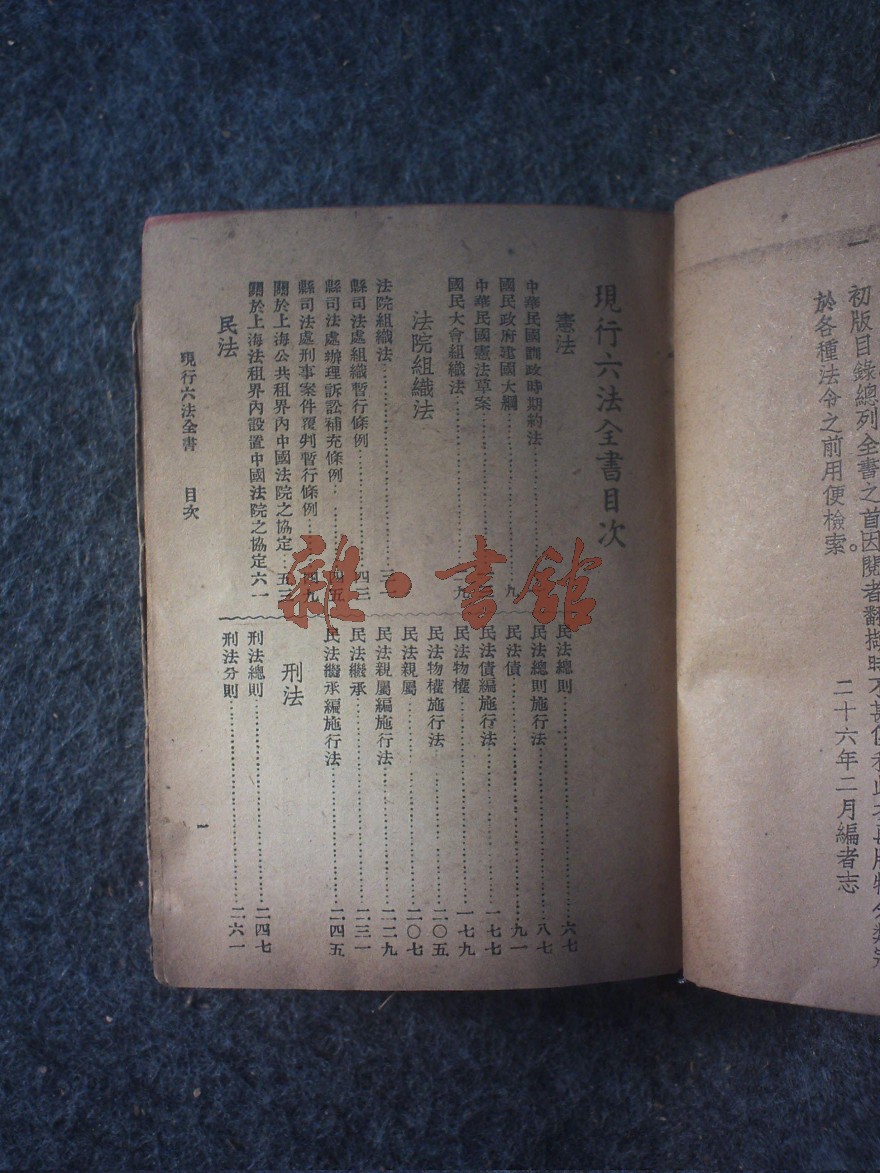 一
初版目錄總列全書之首因閱者翻
於各種法令之前用便檢索。
二十六年二月編者志
現行六法全書目次
憲法
中華民國訓政時期約法
國民政府建國大綱……九
中華民國憲法草案
國民大會組織法
法院組織法
法院組織法……三一
縣司法處組織暫行條例……四三
縣司法處辦理訴訟補充條例……四五
縣司法處刑事案件覆判暫行條例……四九
關於上海公共租界內中國法院之協定……五三
關於上海法租界內設置中國法院之協定六一
民法
民法總則……六七
民法總則施行法……八七
民法債……九一
民法債編施行法……一七七
民法物權……一七九
民法物權施行法……二〇五
民法親屬……二〇七
民法親屬編施行法……二二九
民法繼承……二三一
民法繼承編施行法……二四五
刑法
刑法總則……二四七
刑法分則……二六一
現行六法全書 目次
一
雜·書館